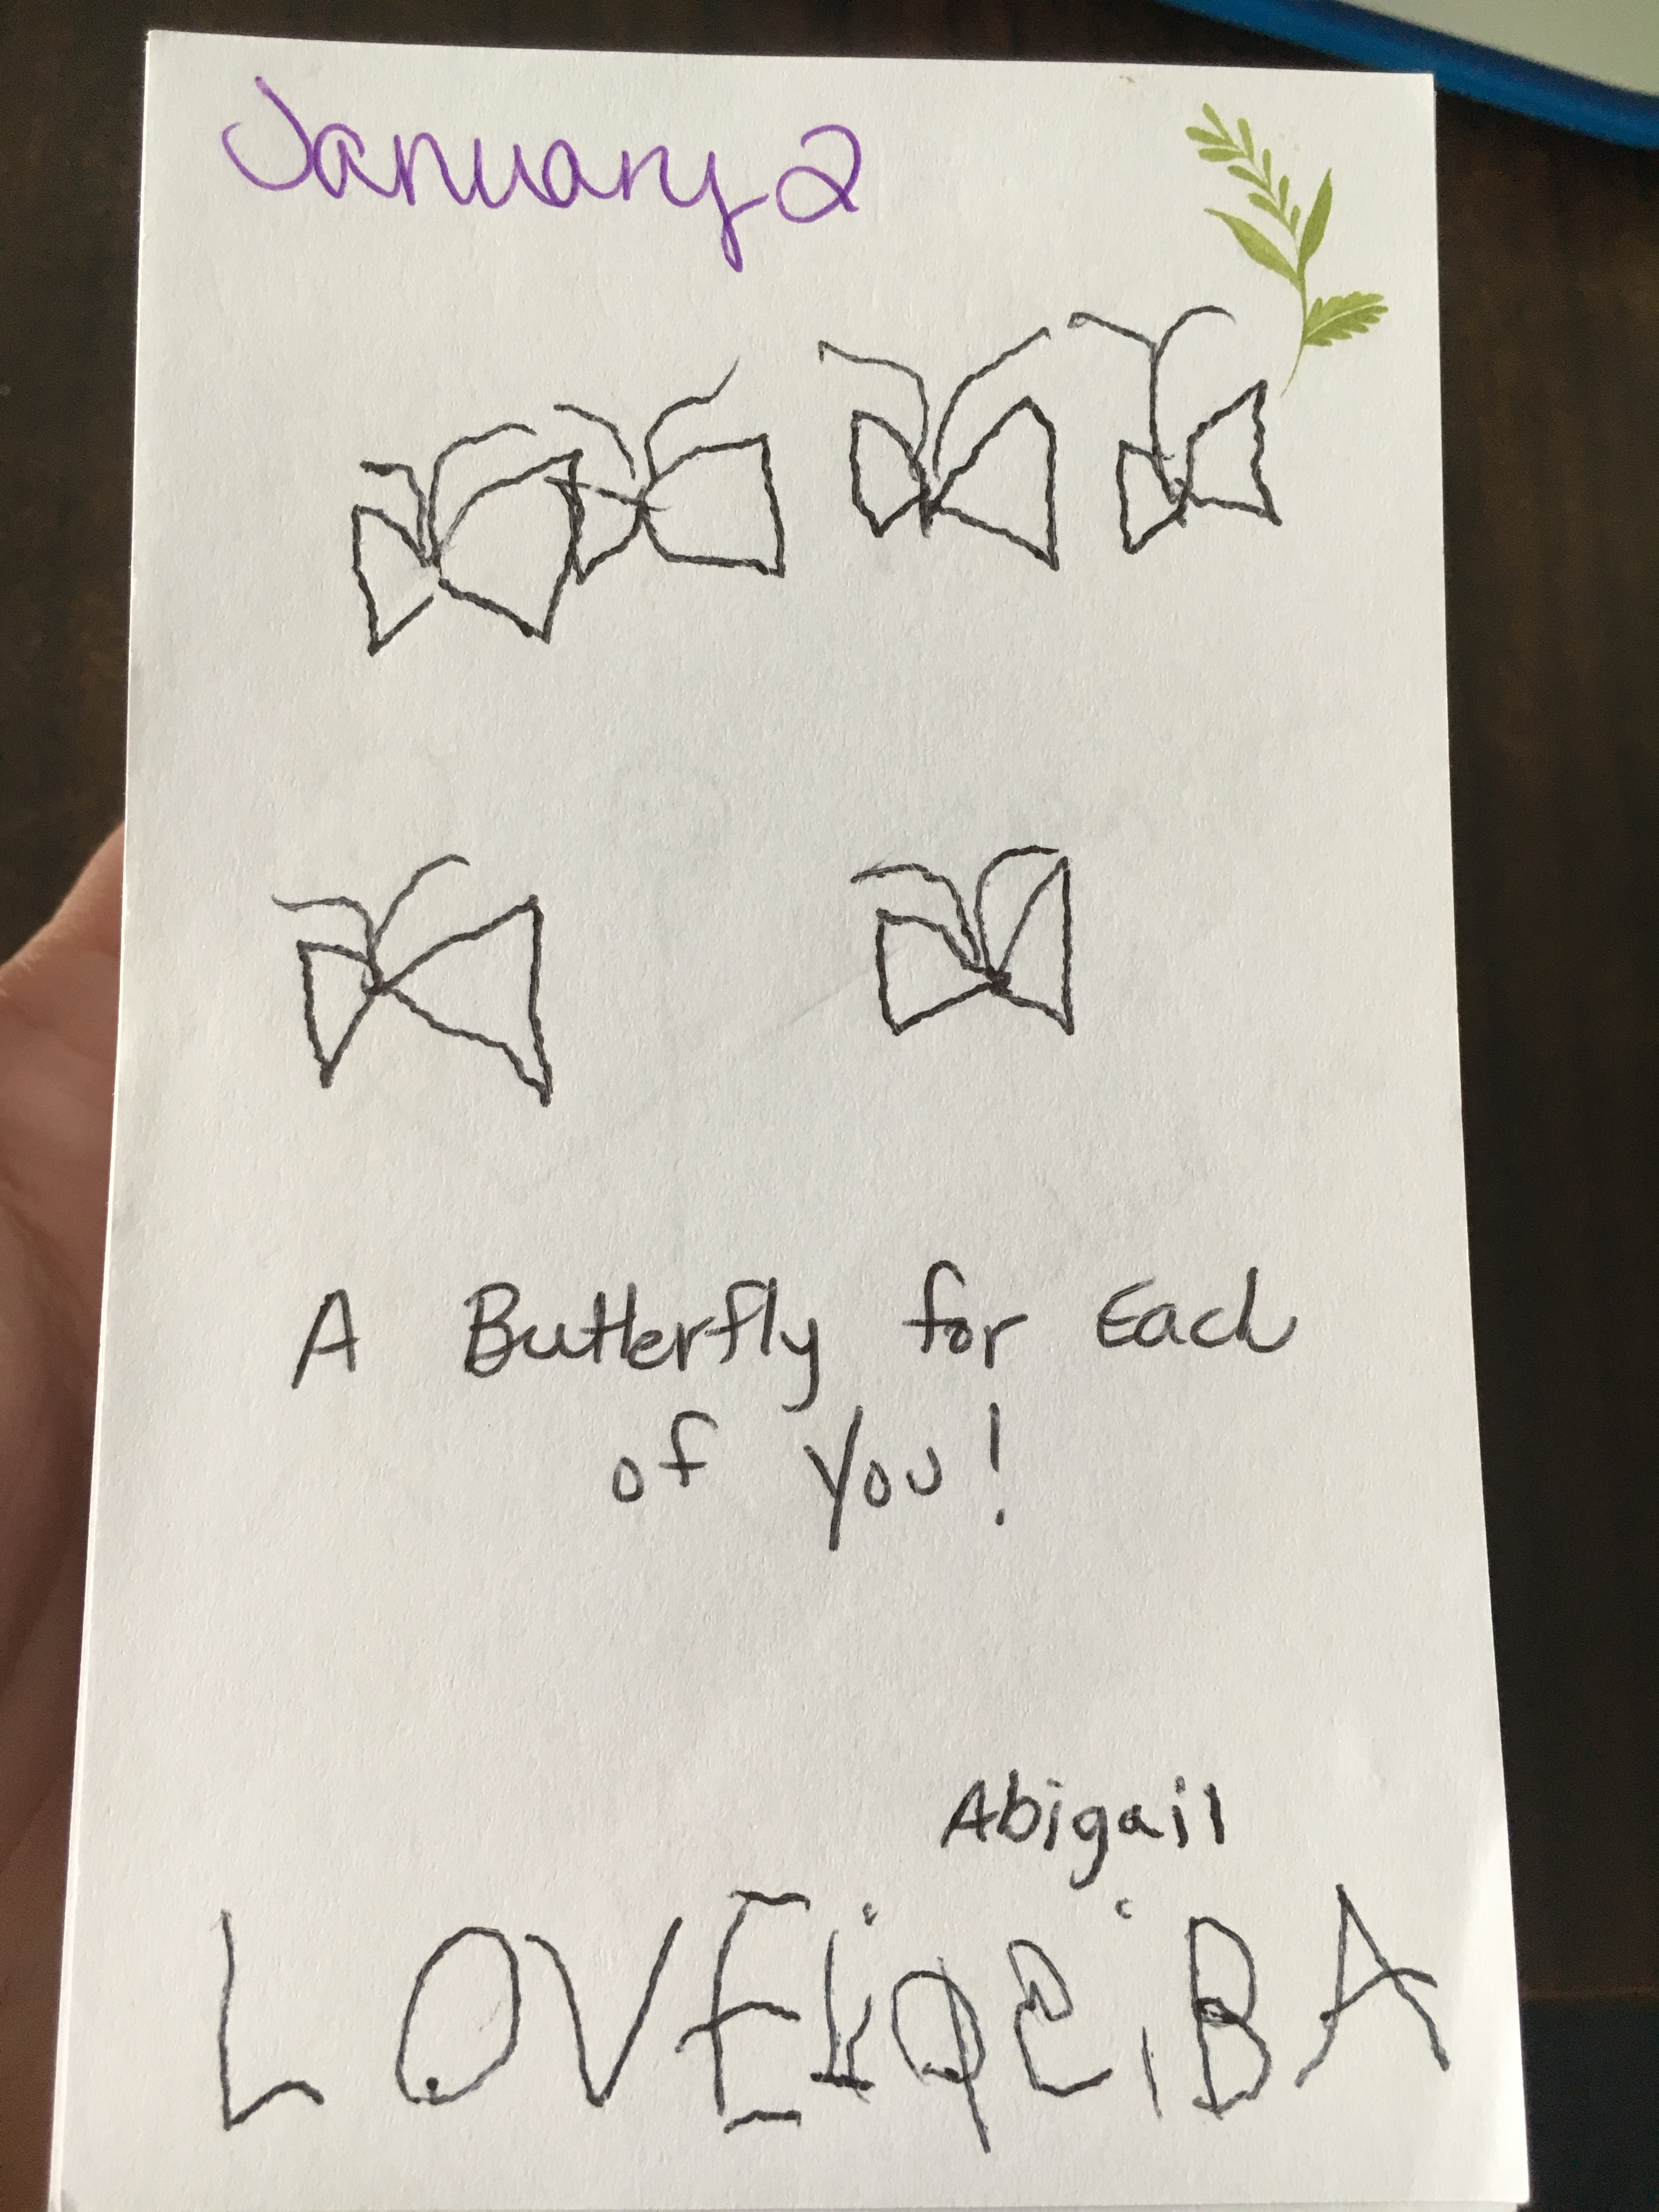 January 2
A Butterfly for Each
of you!
Abigail
LOVE